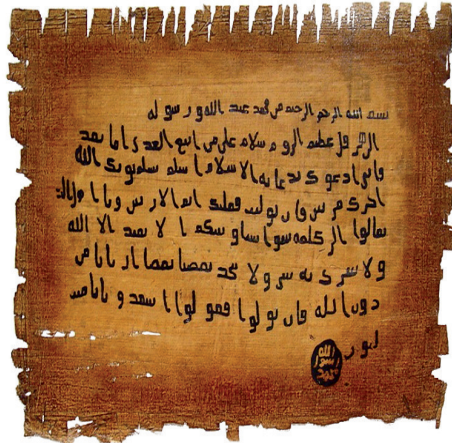 بسم الله الرحمن الرحيم من محمد عبد الله و رسوله
الى هرقل عظيم الروم سلام على من اتبع الهدى اما بعد
فاني ادعوك بدعاية الاسلام اسلم تسلم يوتك الله
اجرك مرتين فان توليت فعليك اثم و يا اهل
تعالوا الى كلمة سوا بيننا و بينكم ا لا نعبد الا الله
ولا نشرك به ولا يتخذ بعضنا بعضا اربابا من
دون الله فان تولوا فقولوا اشهدوا بانا مس
لمون
الله
رسول
محمد